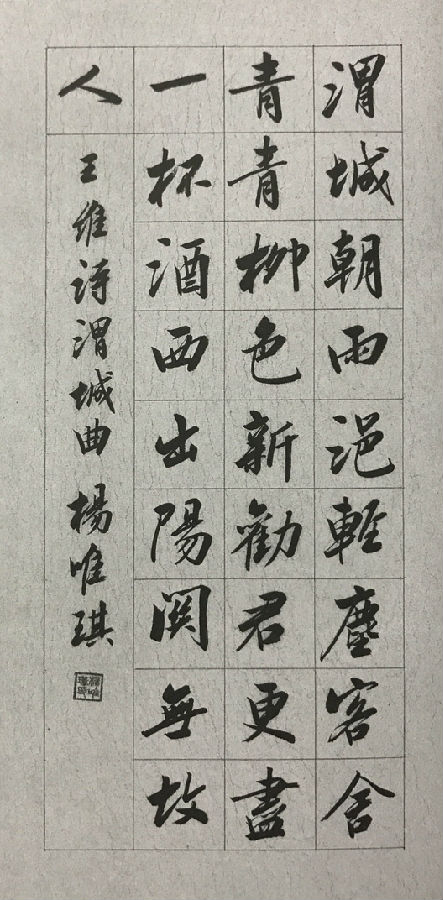 渭城朝雨浥輕塵客舍
青青柳色新勸君更盡
一杯酒西出陽関無故
人
王維詩渭城曲 楊唯琪